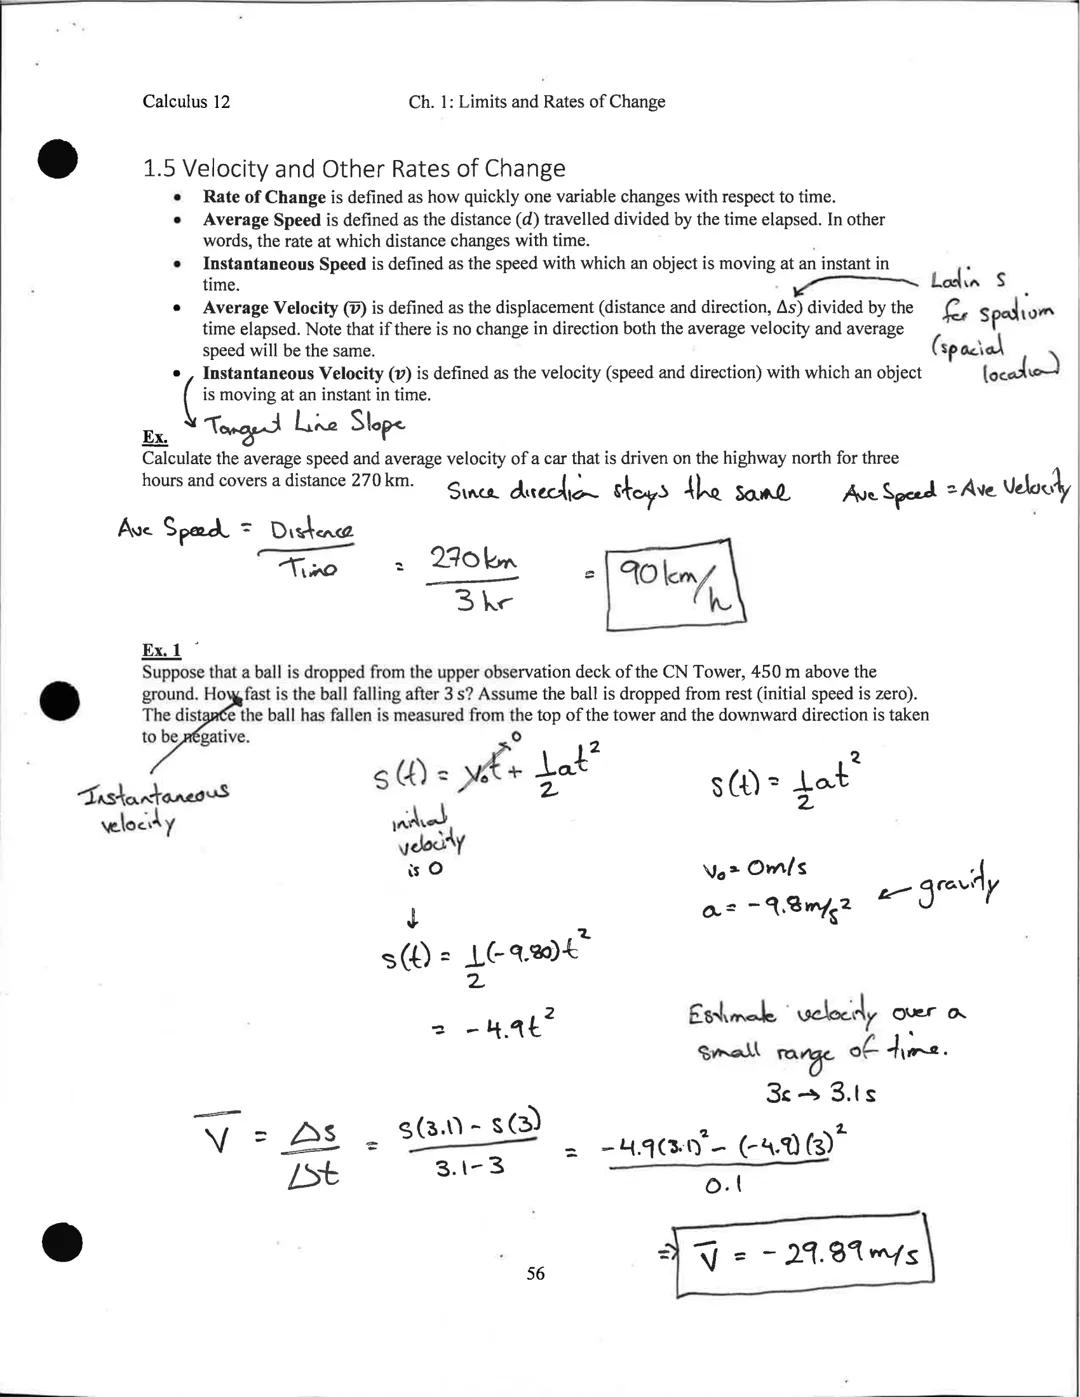 Calculus 12 Ch. 1: Limits and Rates of Change
1.5 Velocity and Other Rates of Change
• Rate of Change is defined as how quickly one variable changes with respect to time.
• Average Speed is defined as the distance (d) travelled divided by the time elapsed. In other
words, the rate at which distance changes with time.
• Instantaneous Speed is defined as the speed with which an object is moving at an instant in
time.
• Average Velocity (v̅) is defined as the displacement (distance and direction, Δs) divided by the
time elapsed. Note that if there is no change in direction both the average velocity and average
speed will be the same.
• Instantaneous Velocity (v) is defined as the velocity (speed and direction) with which an object
is moving at an instant in time.
Latin s
for spatium
(spacial
location)
Tangent Line Slope
Ex.
Calculate the average speed and average velocity of a car that is driven on the highway north for three
hours and covers a distance 270 km.
Since direction stays the same Ave Speed = Ave Velocity
Ave Speed = Distance / Time = 270 km / 3 hr = 90 km/h
Ex. 1
Suppose that a ball is dropped from the upper observation deck of the CN Tower, 450 m above the
ground. How fast is the ball falling after 3 s? Assume the ball is dropped from rest (initial speed is zero).
The distance the ball has fallen is measured from the top of the tower and the downward direction is taken
to be negative.
Instantaneous
velocity
s(t) = v₀t + 1/2 at² s(t) = 1/2 at²
0
initial
velocity
is 0
v₀ = 0m/s
a = -9.8m/s² ← gravity
↓
s(t) = 1/2 (-9.80)t²
= -4.9t²
Estimate velocity over a
small range of time.
3s → 3.1s
V̅ = Δs / Δt = s(3.1) - s(3) / 3.1-3 = -4.9(3.1)² - (-4.9)(3)² / 0.1
⇒ V̅ = -29.89 m/s
56